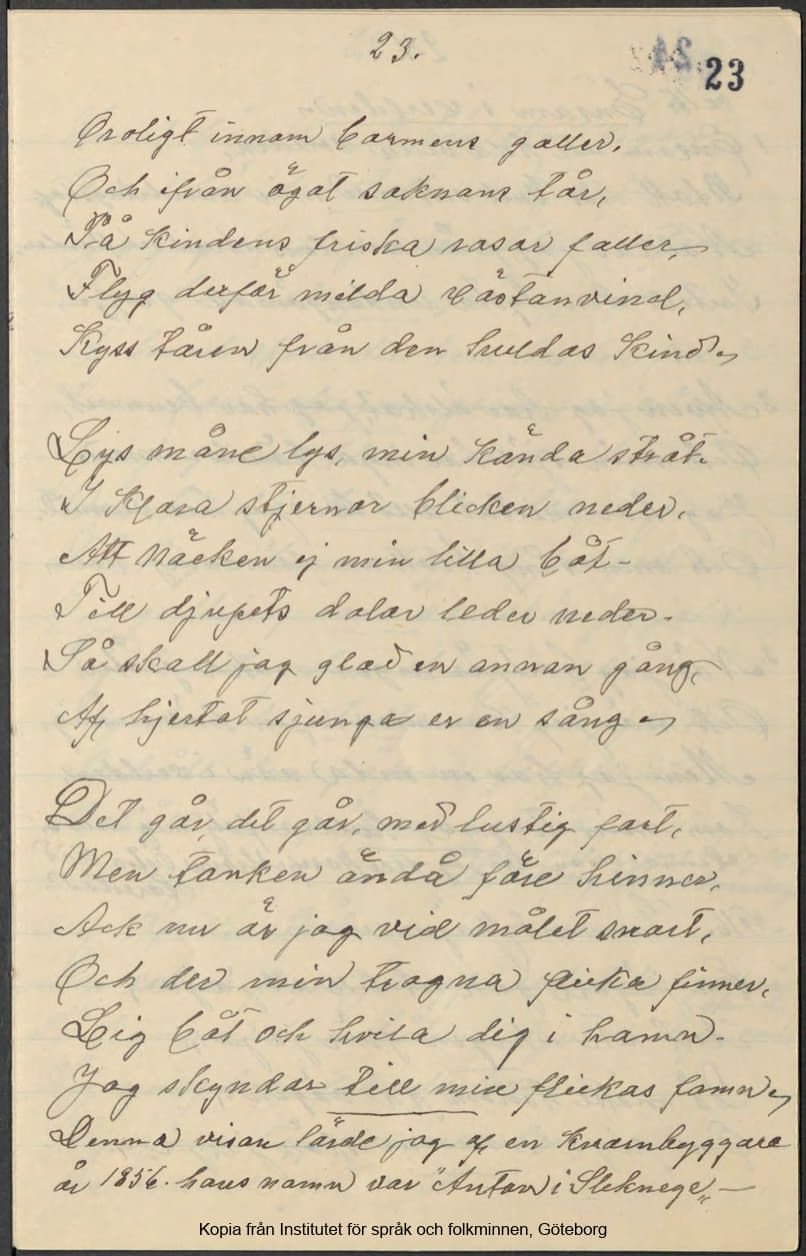 23.
23
Oroligt innom barmens galler,
Och ifrån ögat saknans tår,
På kindens friska rosor faller,
Flyg derför milda västanvind,
Kyss tåren från den huldas kind
Lys måne lys, min kända stråt.
I klara stjernor blicken neder,
Att Näcken ej min lilla båt -
Till djupets dalar leder neder.
Så skall jag glad en annan gång,
Af hjertat sjunga er en sång
Det går, det går, med lustig fart,
Men tanken ändå före hinner,
Ack nu är jag vid målet snart,
Och der min trogna flicka finner,
Lig båt och hvila dig i hamn -
Jag skyndar till min flickas famn
Denna visan lärde jag af en kvarnbyggare
år 1856. hans namn var "Anton i Sleknege" -
Kopia från Institutet för språk och folkminnen, Göteborg